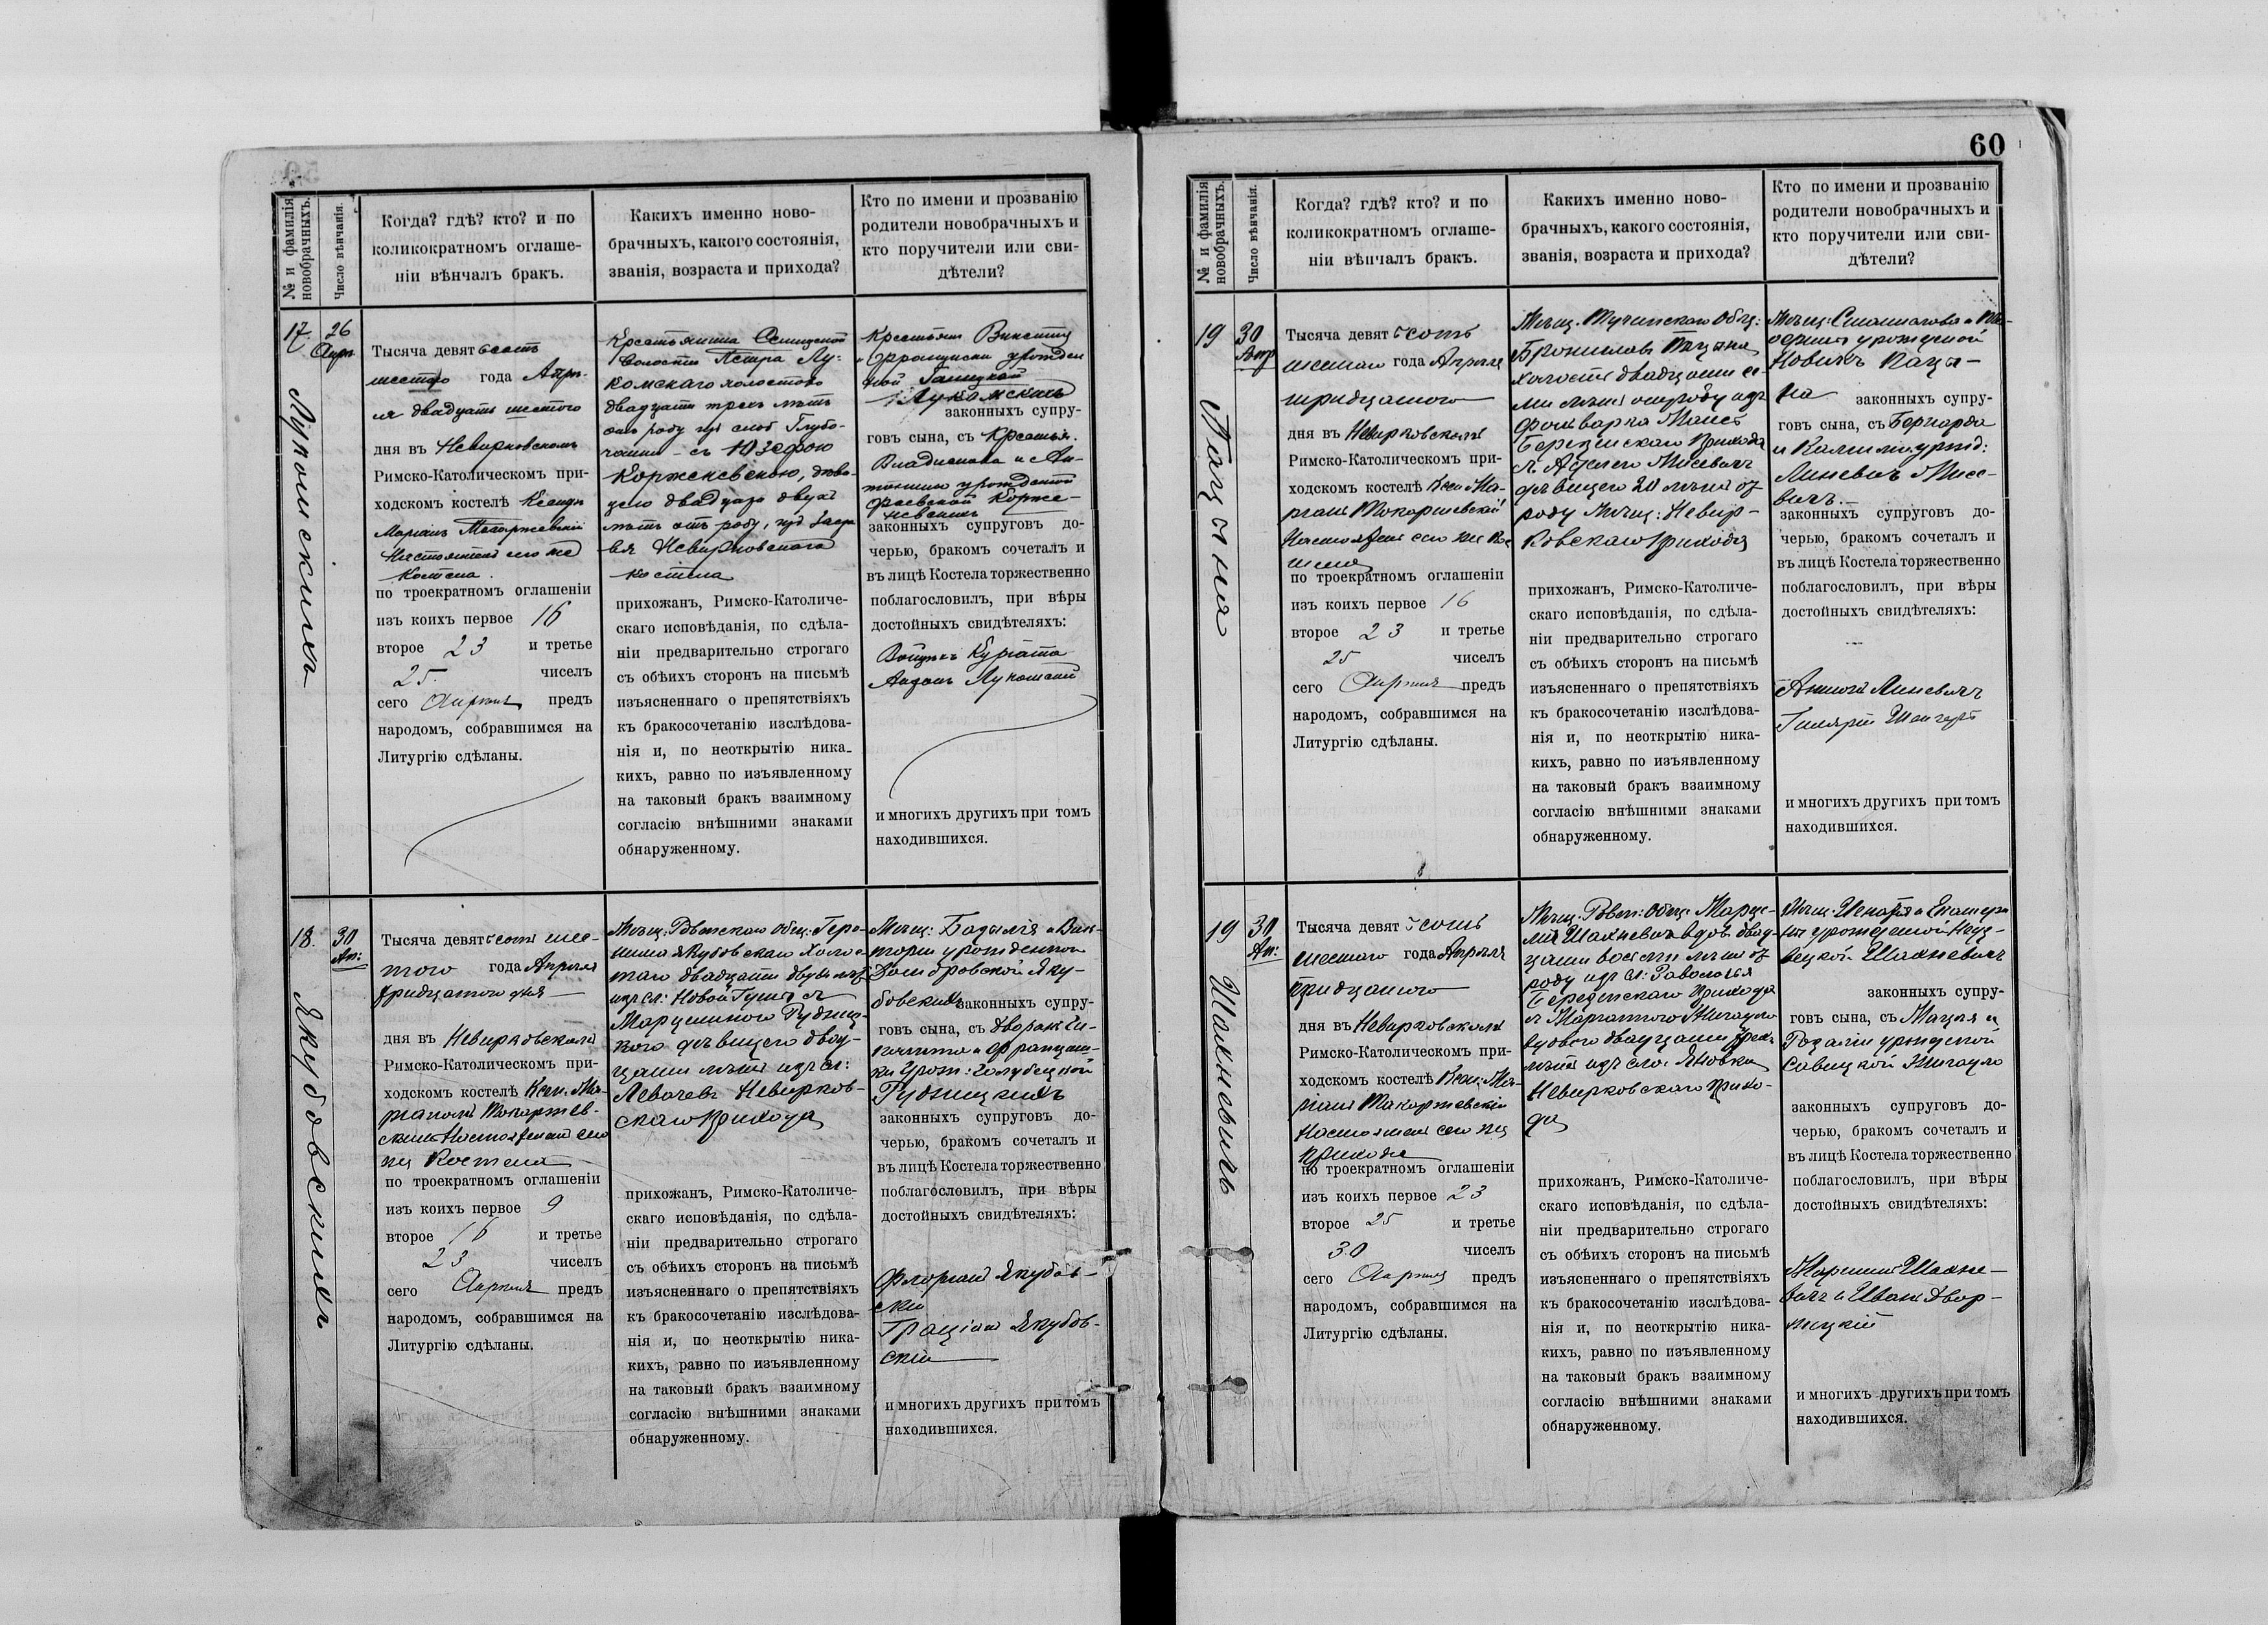 № и фамилія новобрачныхъ.
Число вѣнчанія.
Когда? гдѣ? кто? и по
коликократномъ оглаше-
ніи вѣнчалъ бракъ.
Какихъ именно ново-
брачныхъ, какого состоянія,
званія, возраста и прихода?
Кто по имени и прозванію
родители новобрачныхъ и
кто поручители или сви-
дѣтели?
17.
26
Апр.
Лукомскихъ
Тысяча девятьсотъ
шестого года Апрѣ-
ля двадцать шестого
дня въ Невирковскомъ
Римско-Католическомъ при-
ходскомъ костелѣ Ксендзъ
Маріанъ Токаржевскій
Настоятель сего же
Костела.
по троекратномъ оглашеніи
изъ коихъ первое 16
второе 23 и третье
25. чиселъ
сего Апрѣля предъ
народомъ, собравшимся на
Литургію сдѣланы.
Крестьянина
волости Петра Лу-
комскаго холостого
двадцати трехъ лѣтъ
отъ роду изъ слоб Глубо-
чанки - съ Юзефою
Корженевскою, дѣви-
цею двадцати двухъ
лѣтъ отъ роду, изъ
Невирковскаго
костела
прихожанъ, Римско-Католиче-
скаго исповѣданія, по сдѣла-
ніи предварительно строгаго
съ обѣихъ сторонъ на письмѣ
изъясненнаго о препятствіяхъ
къ бракосочетанію изслѣдова-
нія и, по неоткрытію ника-
кихъ, равно по изъявленному
на таковый бракъ взаимному
согласію внѣшними знаками
обнаруженному.
Крестьянъ Викентія
и Францишки урожден
ной Галицкой
Лукомскихъ
законныхъ супру-
говъ сына, съ Крестьян.
Владислава и Ан-
тонины урожденной
Корже-
невскихъ
законныхъ супруговъ до-
черью, бракомъ сочеталъ и
въ лицѣ Костела торжественно
поблагословилъ, при вѣры
достойныхъ свидѣтеляхъ:
Войцехъ Курята
Антонъ Лукомскій
и многихъ другихъ при томъ
находившихся.
18.
30
Ап:
Якубовскихъ
Тысяча девятьсотъ шес-
того года Апрѣля
тридцатого дня
дня въ Невирковскомъ
Римско-Католическомъ при-
ходскомъ костелѣ Ксен. Ма-
ріанъ Токаржев-
скій Настоятель сего
же Костела
по троекратномъ оглашеніи
изъ коихъ первое 9
второе 16 и третье
23 чиселъ
сего Апрѣля предъ
народомъ, собравшимся на
Литургію сдѣланы.
Мѣщ. Ровенскаго общ:
Якубовскаго холос-
таго двадцати двухъ лѣтъ
изъ сл: Новой Гуты съ
Марцелиною Рудниц-
кою дѣвицею двад-
цати лѣтъ изъ сл:
Левачевъ Невирков-
скаго прихода
прихожанъ, Римско-Католиче-
скаго исповѣданія, по сдѣла-
ніи предварительно строгаго
съ обѣихъ сторонъ на письмѣ
изъясненнаго о препятствіяхъ
къ бракосочетанію изслѣдова-
нія и, по неоткрытію ника-
кихъ, равно по изъявленному
на таковый бракъ взаимному
согласію внѣшними знаками
обнаруженному.
Мѣщ: Базылія и Вик-
торіи урожденной
Домбровской Яку-
бовскихъ законныхъ супру-
говъ сына, съ дворянъ
и Францыш-
ки урож: Голубецкой
Рудницкихъ
законныхъ супруговъ до-
черью, бракомъ сочеталъ и
въ лицѣ Костела торжественно
поблагословилъ, при вѣры
достойныхъ свидѣтеляхъ:
Флоріанъ Якубов-
скій
Граціанъ Якубов-
скій
и многихъ другихъ при томъ
находившихся.
60
№ и фамилія новобрачныхъ.
Число вѣнчанія.
Когда? гдѣ? кто? и по
коликократномъ оглаше-
ніи вѣнчалъ бракъ.
Какихъ именно ново-
брачныхъ, какого состоянія,
званія, возраста и прихода?
Кто по имени и прозванію
родители новобрачныхъ и
кто поручители или сви-
дѣтели?
19
30
Апр
Пацына
Тысяча девятьсотъ
шестаго года Апрѣля
тридцатого
дня въ Невирковскомъ
Римско-Католическомъ при-
ходскомъ костелѣ Ксен Ма-
ріанъ Токаржевскій
Настоятель сего же Ко
стела
по троекратномъ оглашеніи
изъ коихъ первое 16
второе 23 и третье
25 чиселъ
сего Апрѣля предъ
народомъ, собравшимся на
Литургію сдѣланы.
Мѣщ. Тучинскаго общ:
Брониславъ Пацына
холостъ двадцати се-
ми лѣтъ отъ роду изъ
фольварка
Березенскаго прихода
съ Мисевичъ
дѣвицею 20 лѣтъ от
роду Мѣщ: Невир-
ковскаго прихода
прихожанъ, Римско-Католиче-
скаго исповѣданія, по сдѣла-
ніи предварительно строгаго
съ обѣихъ сторонъ на письмѣ
изъясненнаго о препятствіяхъ
къ бракосочетанію изслѣдова-
нія и, по неоткрытію ника-
кихъ, равно по изъявленному
на таковый бракъ взаимному
согласію внѣшними знаками
обнаруженному.
Мѣщ: Станислава и
урожденной
Пацы-
на законныхъ супру-
говъ сына, съ Бернарда
и Камиліи урожд:
Линевичъ Мисе-
вичъ.
законныхъ супруговъ до-
черью, бракомъ сочеталъ и
въ лицѣ Костела торжественно
поблагословилъ, при вѣры
достойныхъ свидѣтеляхъ:
Антонъ Линевичъ
Гилярій
и многихъ другихъ при томъ
находившихся.
19
30
Ап:
Шахневичъ
Тысяча девятьсотъ
шестаго года Апрѣля
тридцатого
дня въ Невирковскомъ
Римско-Католическомъ при-
ходскомъ костелѣ Ксен: Ма-
ріанъ Токаржевскій
Настоятель сего же
прихода
по троекратномъ оглашеніи
изъ коихъ первое 23
второе 25 и третье
30 чиселъ
сего Апрѣля предъ
народомъ, собравшимся на
Литургію сдѣланы.
Мѣщ: Ровен: общ: Марце-
лій Шахневичъ вдов. двад-
цати восьми лѣтъ от
роду изъ сл:
Березенскаго прихода
съ
вдовою двадцати трехъ
лѣтъ изъ сло: Яновки
Невирковскаго прихо-
да
прихожанъ, Римско-Католиче-
скаго исповѣданія, по сдѣла-
ніи предварительно строгаго
съ обѣихъ сторонъ на письмѣ
изъясненнаго о препятствіяхъ
къ бракосочетанію изслѣдова-
нія и, по неоткрытію ника-
кихъ, равно по изъявленному
на таковый бракъ взаимному
согласію внѣшними знаками
обнаруженному.
Мѣщ: Игнатія и Екатери
ны урожденной
Шахневичъ
законныхъ супру-
говъ сына, съ Мацѣя и
Розаліи урожденой
Савицкой
законныхъ супруговъ до-
черью, бракомъ сочеталъ и
въ лицѣ Костела торжественно
поблагословилъ, при вѣры
достойныхъ свидѣтеляхъ:
Шахне-
вичъ и Иванъ Двор-
ницкій
и многихъ другихъ при томъ
находившихся.